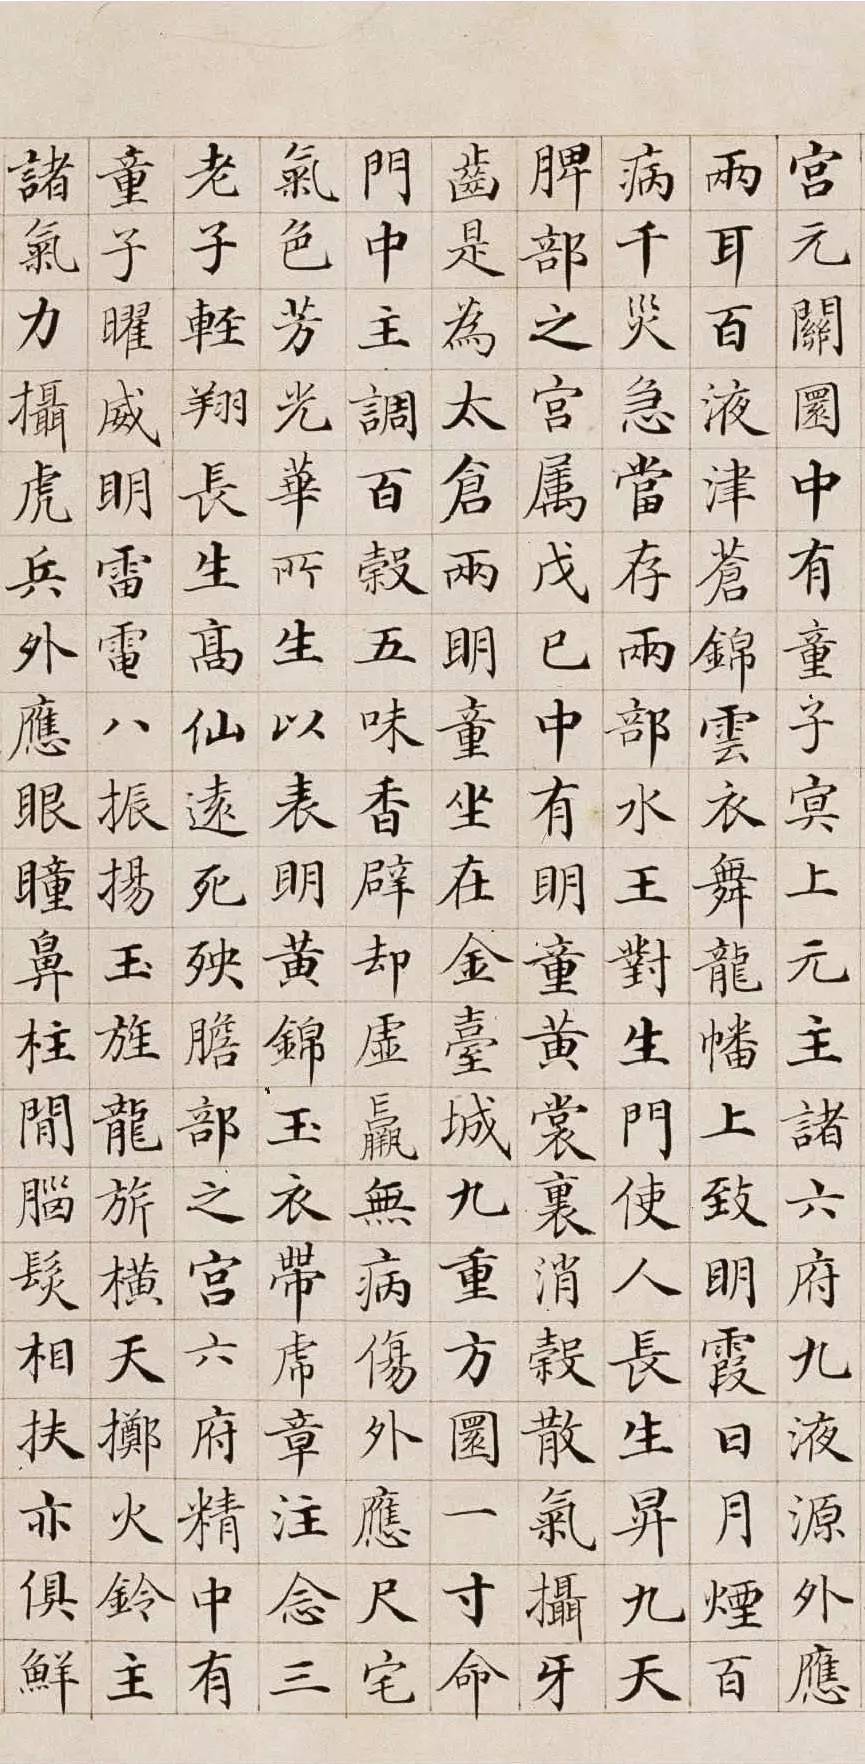 宮元關圜中有童子㝠上元主諸六府九液源外應
兩耳百液津蒼錦雲衣舞龍幡上致明霞日月煙百
病千災急當存兩部水王對生門使人長生昇九天
脾部之宮属戊巳中有明童黃裳裏消穀散氣攝牙
齒是為太倉兩明童坐在金臺城九重方圜一寸命
門中主調百穀五味香辟却虛羸無病傷外應尺宅
氣色芳光華所生以表明黃錦玉衣帶虎章注念三
老子輕翔長生高仙遠死殃膽部之宮六府精中有
童子曜威明雷電八振揚玉旌龍旂橫天擲火鈴主
諸氣力攝虎兵外應眼瞳鼻柱間腦髮相扶亦俱鮮